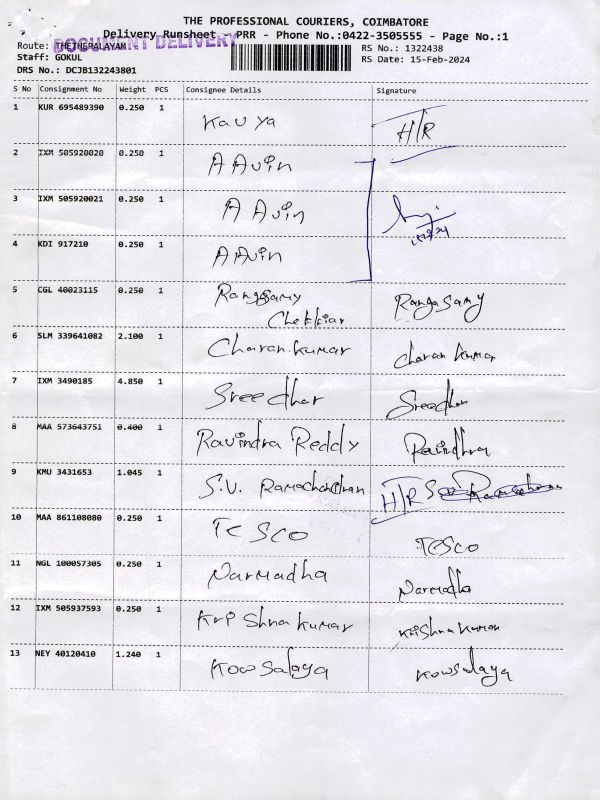 THE PROFESSIONAL COURIERS, COIMBATORE
Delivery Runsheet - PRR - Phone No.:0422-3505555 - Page No.:1
DOCUMENT DELIVERY
Route: THETHEPALAYAM RS No.: 1322438
Staff: GOKUL RS Date: 15-Feb-2024
DRS No.: DCJB132243801
S No Consignment No Weight PCS Consignee Details Signature
1 KUR 695489390 0.250 1 Kavya H/R
2 IXM 505920020 0.250 1 A Avin
3 IXM 505920021 0.250 1 A Avin
4 KDI 917210 0.250 1 A Avin
5 CGL 40023115 0.250 1 Rangasamy Rangasamy
Chettiar
6 SLM 339641082 2.100 1 Charan.kumar charan kumar
7 IXM 3490185 4.850 1 Sreedhar Sreedhar
8 MAA 573643751 0.400 1 Ravindra Reddy Ravindhra
9 KMU 3431653 1.045 1 S.V. Ramachandran H/R
10 MAA 861108080 0.250 1 TESCO TESCO
11 NGL 100057305 0.250 1 Narmadha Narmadha
12 IXM 505937593 0.250 1 Krishna kumar Krishna kumar
13 NEY 40120410 1.240 1 Kowsalaya Kowsalaya